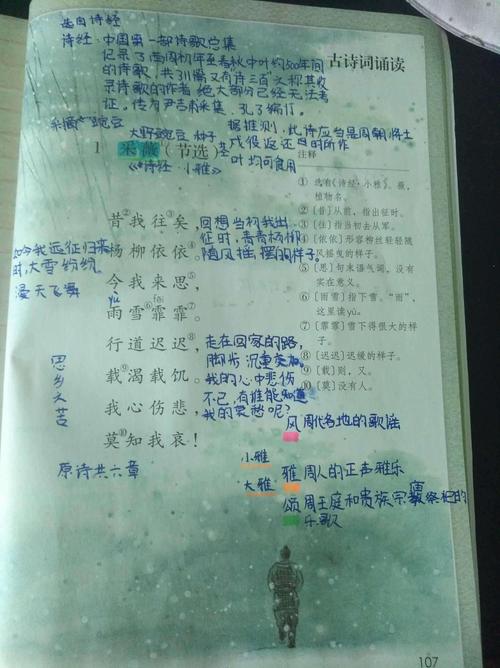 选自诗经
诗经·中国第一部诗歌总集
记录了西周初年至春秋中叶约500年间
的诗歌，共311篇又有诗三百之称其收
录诗歌的作者绝大部分已经无法考
证，传为尹吉甫采集、孔子编订。
古诗词诵读
采薇 豌豆
大野豌豆 种子
据推测，此诗应当是周朝将士
戍役返还时所作
1 采薇（节选）
茎叶均可食用
《诗经·小雅》
注释
①选自《诗经·小雅》。薇，
植物名。
②〔昔〕从前，指出征时。
③〔往〕指当初去从军。
④〔依依〕形容柳丝轻轻随
风摇曳的样子。
⑤〔思〕句末语气词，没有
实在意义。
⑥〔雨雪〕指下雪。“雨”，
这里读yù。
⑦〔霏霏〕雪下得很大的样
子。
⑧〔迟迟〕迟缓的样子。
⑨〔载〕则，又。
⑩〔莫〕没有人。
昔②我往③矣，
杨柳依依④。
今我来思⑤，
yù
fēi
雨雪⑥霏霏⑦。
行道迟迟⑧，
载⑨渴载饥。
我心伤悲，
莫⑩知我哀！
回想当初我出
征时，青青杨柳
随风摇摆的样子。
如今我远征归来
时，大雪纷纷，
漫天飞舞
走在回家的路，
脚步沉重
我的心中悲伤
不已，有谁能知道
我的哀愁呢？
思乡之苦
原诗共六章
风 周代各地的歌谣
小雅
大雅
雅 周人的正声雅乐
颂 周王庭和贵族宗庙祭祀的
乐歌
107